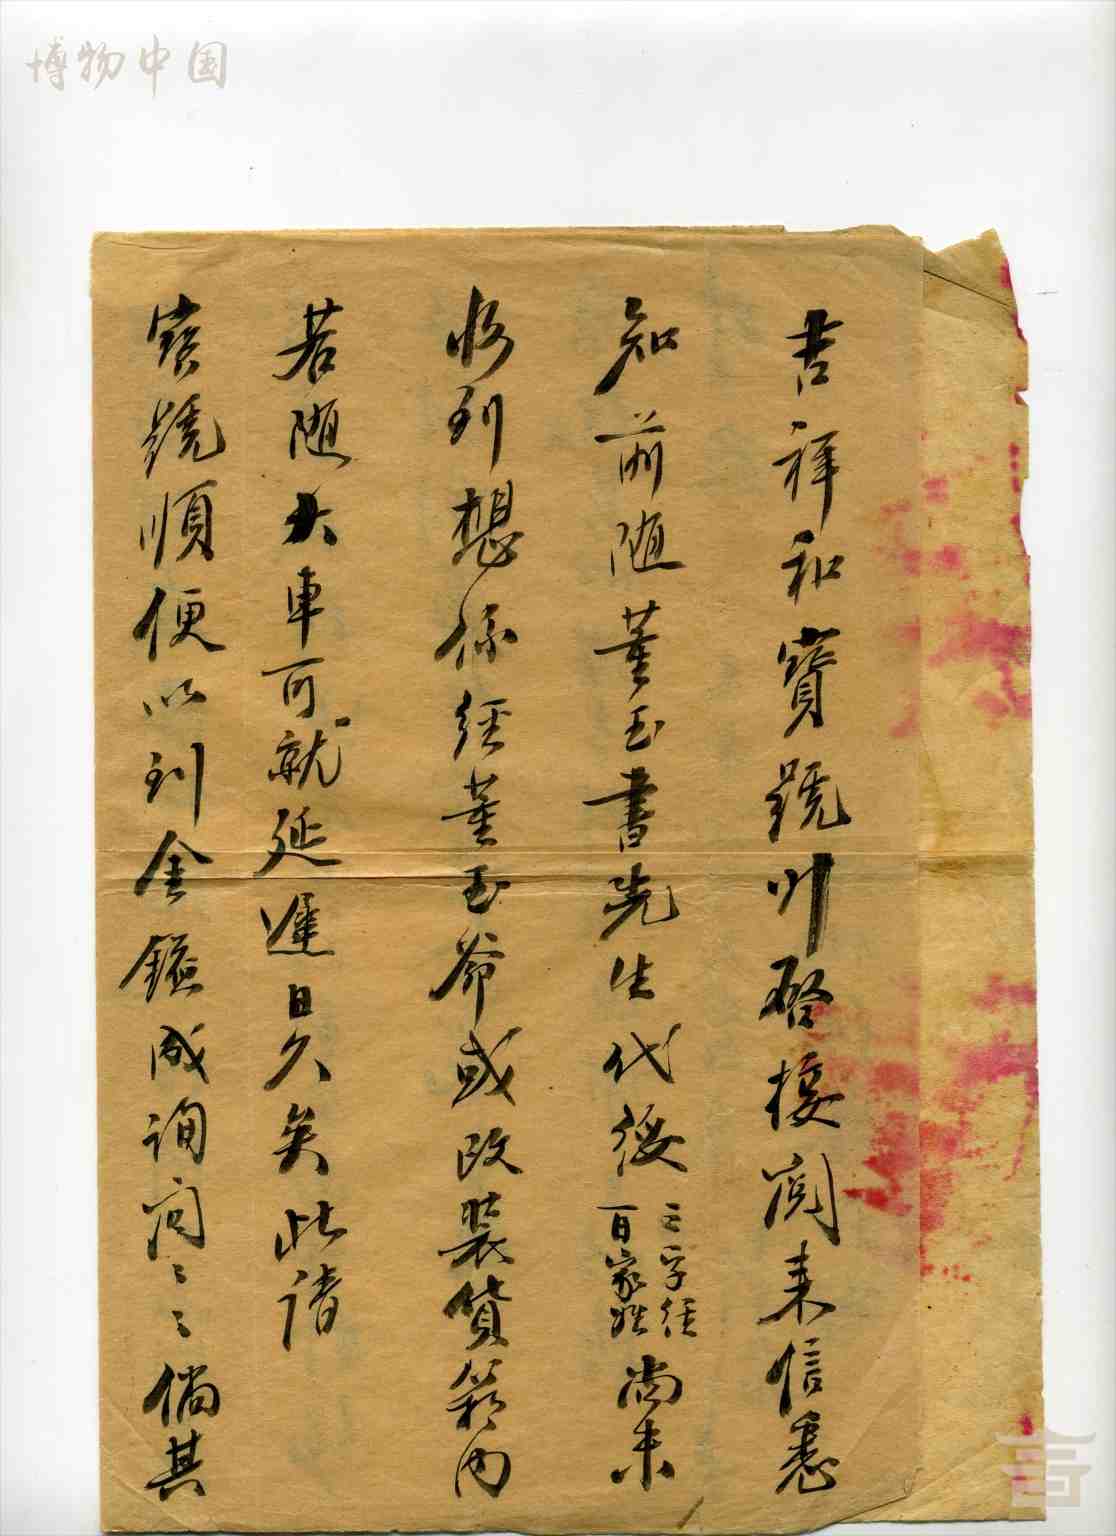 博物中国
吉祥和寶號川啓接閱来信悉
知前随董玉書先生代綏三字經百家姓尚未
收到想係經董玉爺或改裝貨箱内
若随大車可就延遲日久矣此請
寶號順便以到金鎰成詢问〻〻倘其